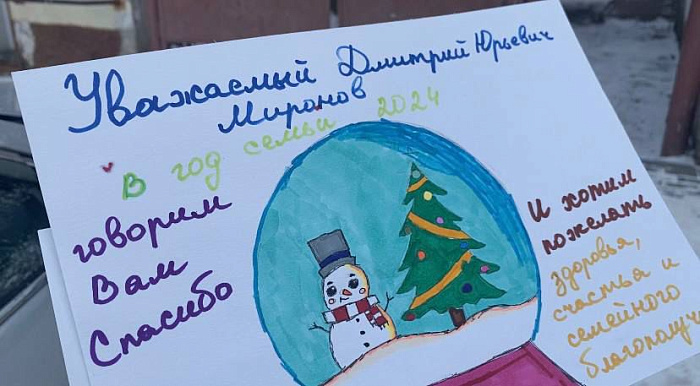 Уважаемый Дмитрий Юрьевич
Миронов
В год семьи 2024
говорим
Вам
Спасибо
И хотим
пожелать
здоровья,
счастья и
семейного
благополуч